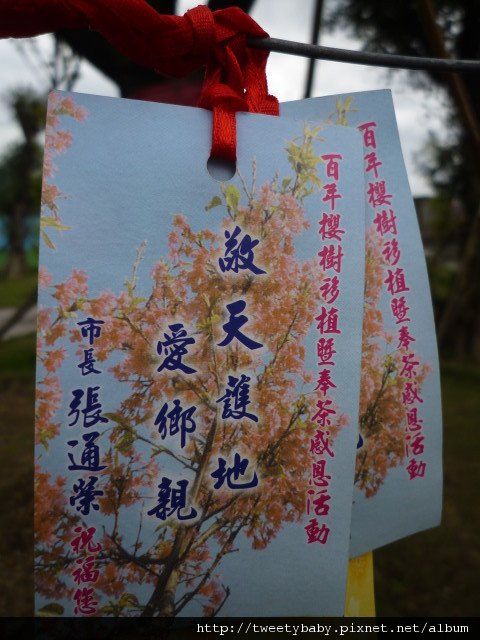 百年櫻樹移植暨奉茶感恩活動
敬天護地
愛鄉親
市長 張通榮 祝福您
百年櫻樹移植暨奉茶感恩活動
http://tweetybaby.pixnet.net/album